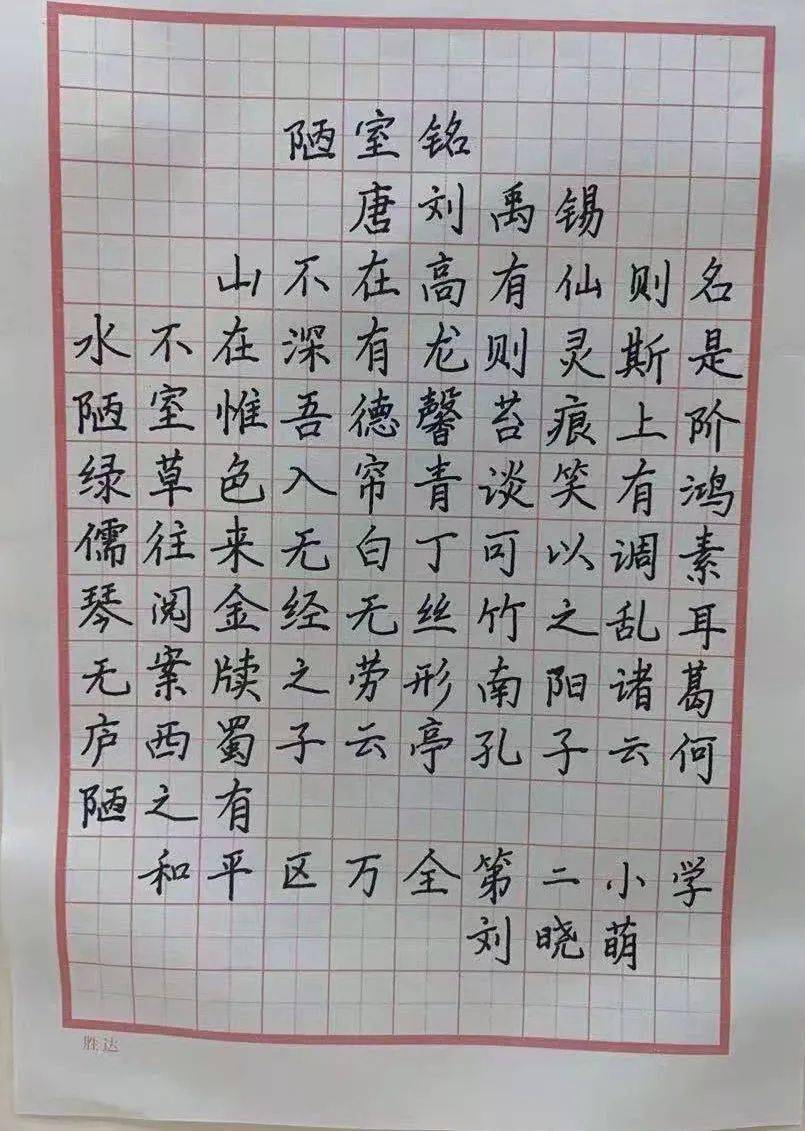 陋室铭
唐刘禹锡
山不在高有仙则名
水不在深有龙则灵斯是
陋室惟吾德馨苔痕上阶
绿草色入帘青谈笑有鸿
儒往来无白丁可以调素
琴阅金经无丝竹之乱耳
无案牍之劳形南阳诸葛
庐西蜀子云亭孔子云何
陋之有
和平区万全第二小学
刘晓萌
胜达